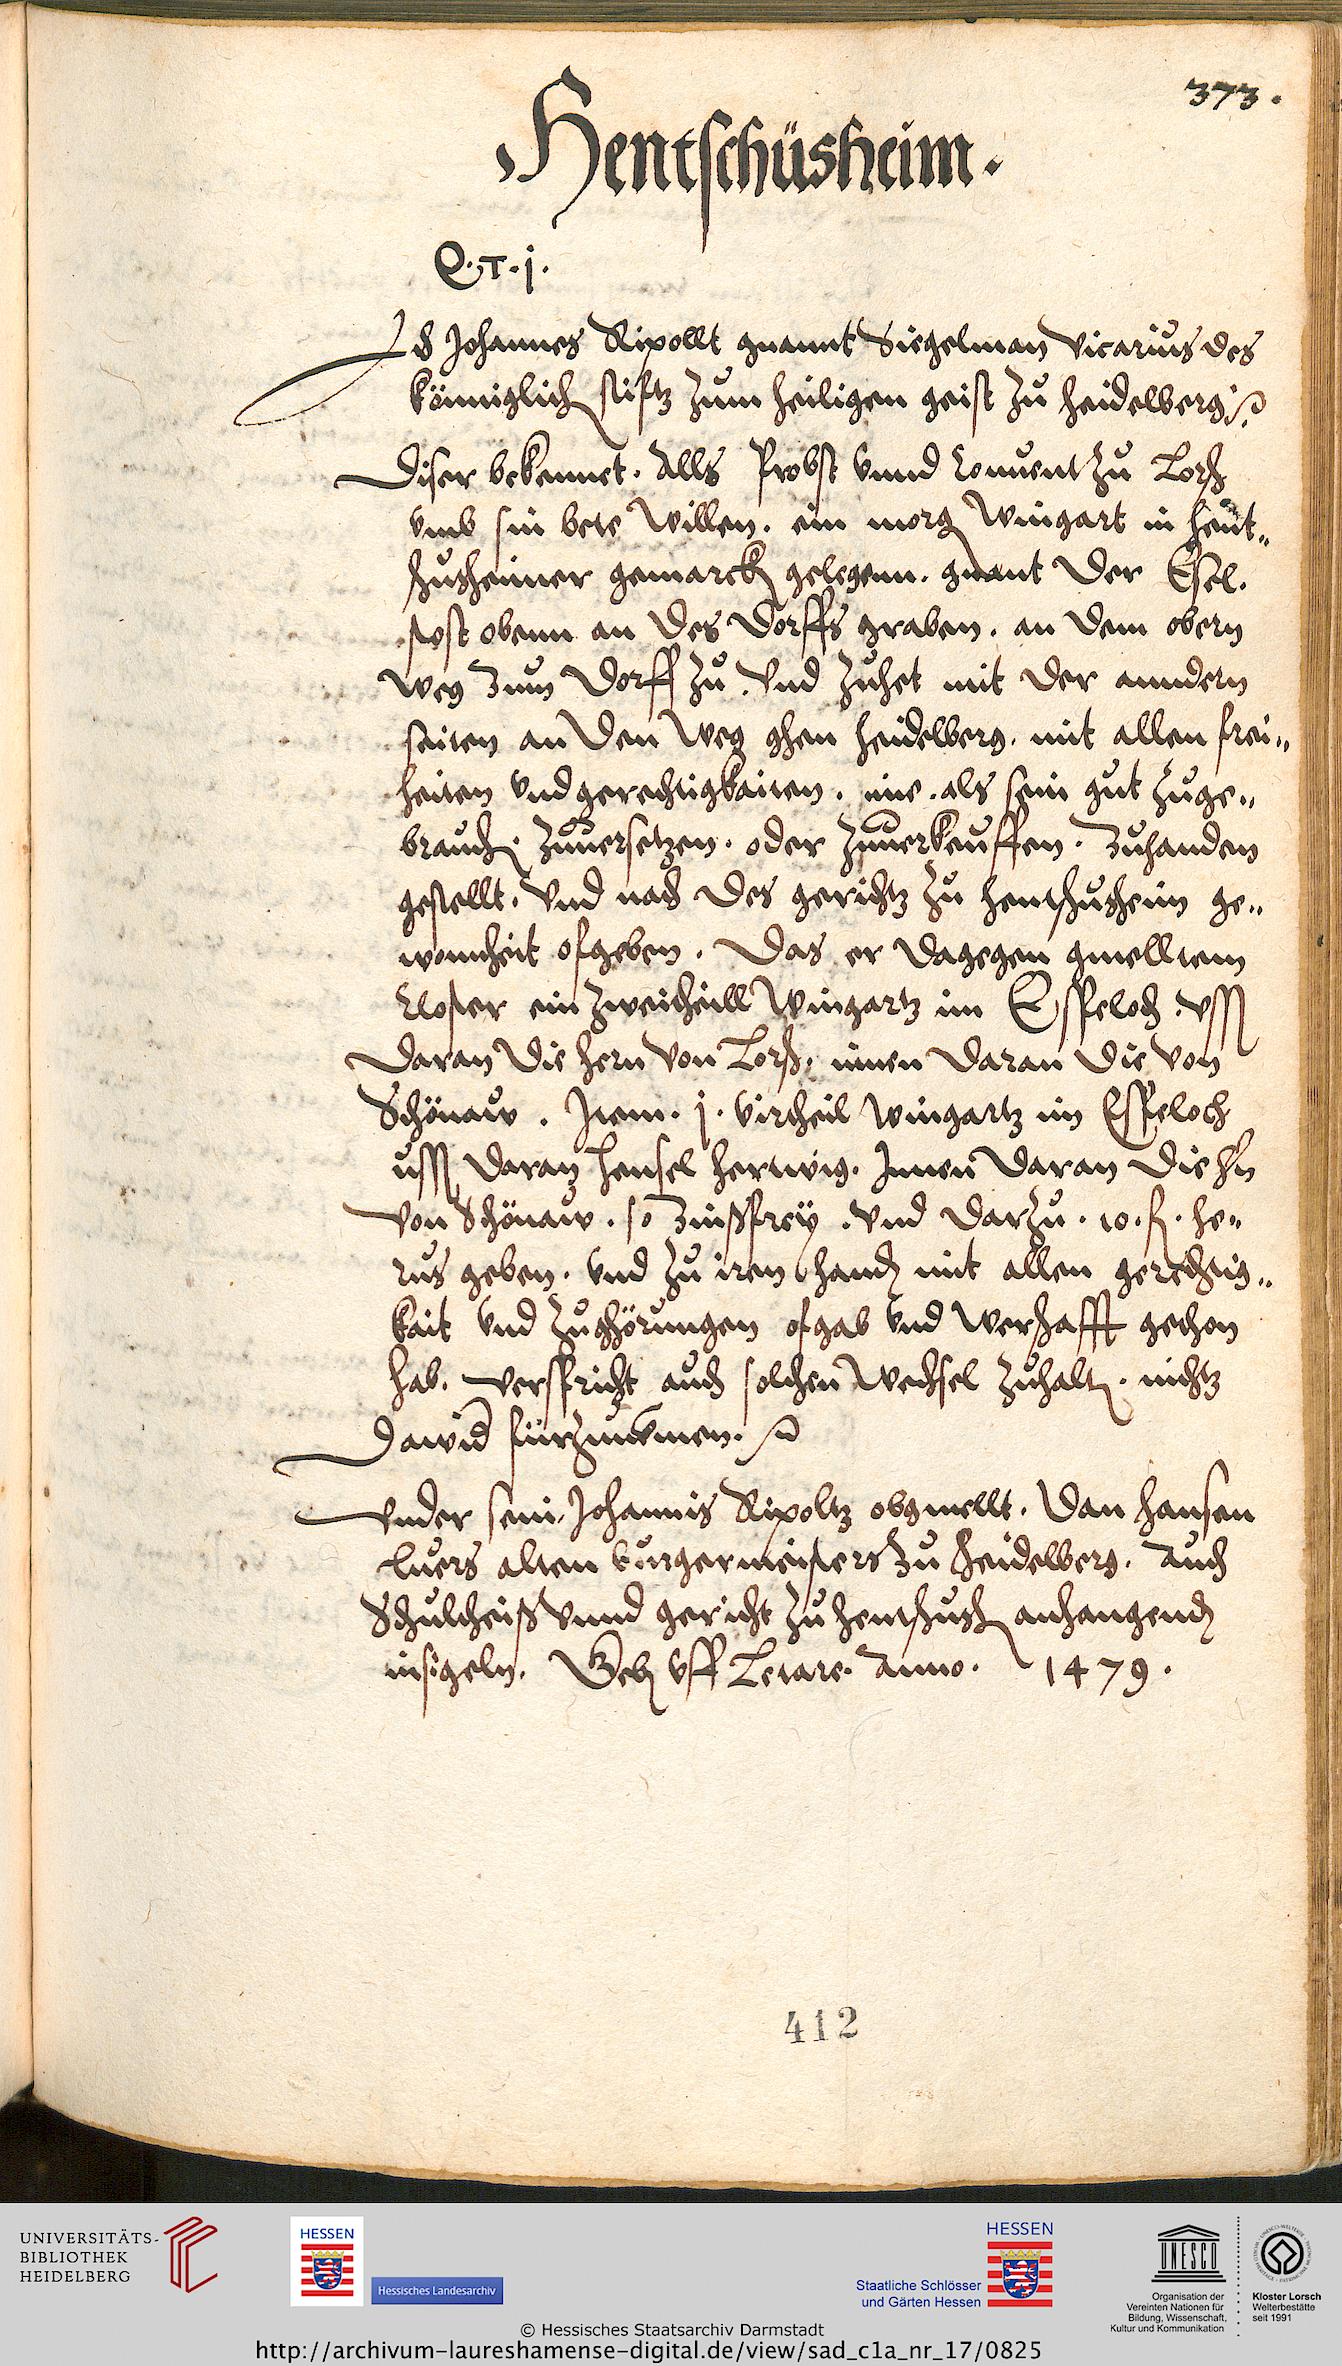 373.
Hentschüsheim.
Q.T.j.
Ich Johannes Ripollt gnannt Siegelman Vicarius des
königlich stifftz zum heiligen geist zu heidelberg
Diser bekennet. Alls Probst vnnd Conuent zu Lorß
vmb sin bete willen. ein morg Wingart in hent„
schußheimer gemarck gelegenn. gnant der Esel.
stost obenn an des dorffs graben. an dem obern
weg zum dorff zu. vnd zuhet mit der anndern
seiten an den weg ghen heidelberg. mit allen frei„
heiten vnd gerechtigkaiten. als sein gut zuge„
brauch. zuuersetzen. oder zuuerkeuffen. zuhanden
gestellt. vnd nach des gerichtz zu hentschußheim ge„
wonheit ofgeben. Das er dagegen gmelltem
Closter ein zweitheill Wingartz im Esseloch. vssen
daran die hern von Lorß. innen daran die von
Schönaw. Item. j. virtheil wingartz im Esseloch
ussen daran hensel hertwig. Innen daran die hn
von Schönaw. so zinßfrey. vnd darzu. 10. fl. he„
rus geben. vnd zu iren hand mit allen gerechtig„
kait vnd zughörungen ofgab vnd werschafft gethon
hab. verspricht auch solchen Wechsel zuhalt. nichtz
dawid fürzunemen.
Vnder sein Johannis Ripoltz obgmellt. Dan hansen
luers alten burgermeisters zu heidelberg. Auch
Schultheiß vnnd gericht zu hentschuß anhangend
insigeln. Geb vff Letare. Anno. 1479.
412
UNIVERSITÄTS-
BIBLIOTHEK
HEIDELBERG
HESSEN
Hessisches Landesarchiv
HESSEN
Staatliche Schlösser
und Gärten Hessen
UNESCO
Organisation der
Vereinten Nationen für
Bildung, Wissenschaft,
Kultur und Kommunikation
Kloster Lorsch
Welterbestätte
seit 1991
© Hessisches Staatsarchiv Darmstadt
http://archivum-laureshamense-digital.de/view/sad_c1a_nr_17/0825